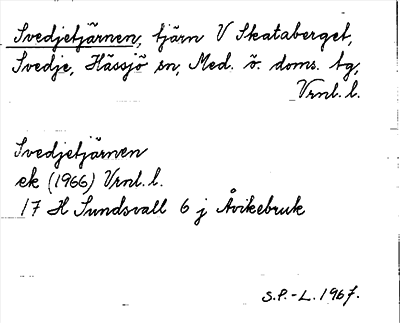 Svedjetjärnen, tjärn V Skataberget,
Svedje, Hässjö sn, Med. ö. doms. tg,
Vrnl. l.
Svedjetjärnen
ek (1966) Vrnl. l.
17 H Sundsvall 6 j Åvikebruk
S.P.-L. 1967.